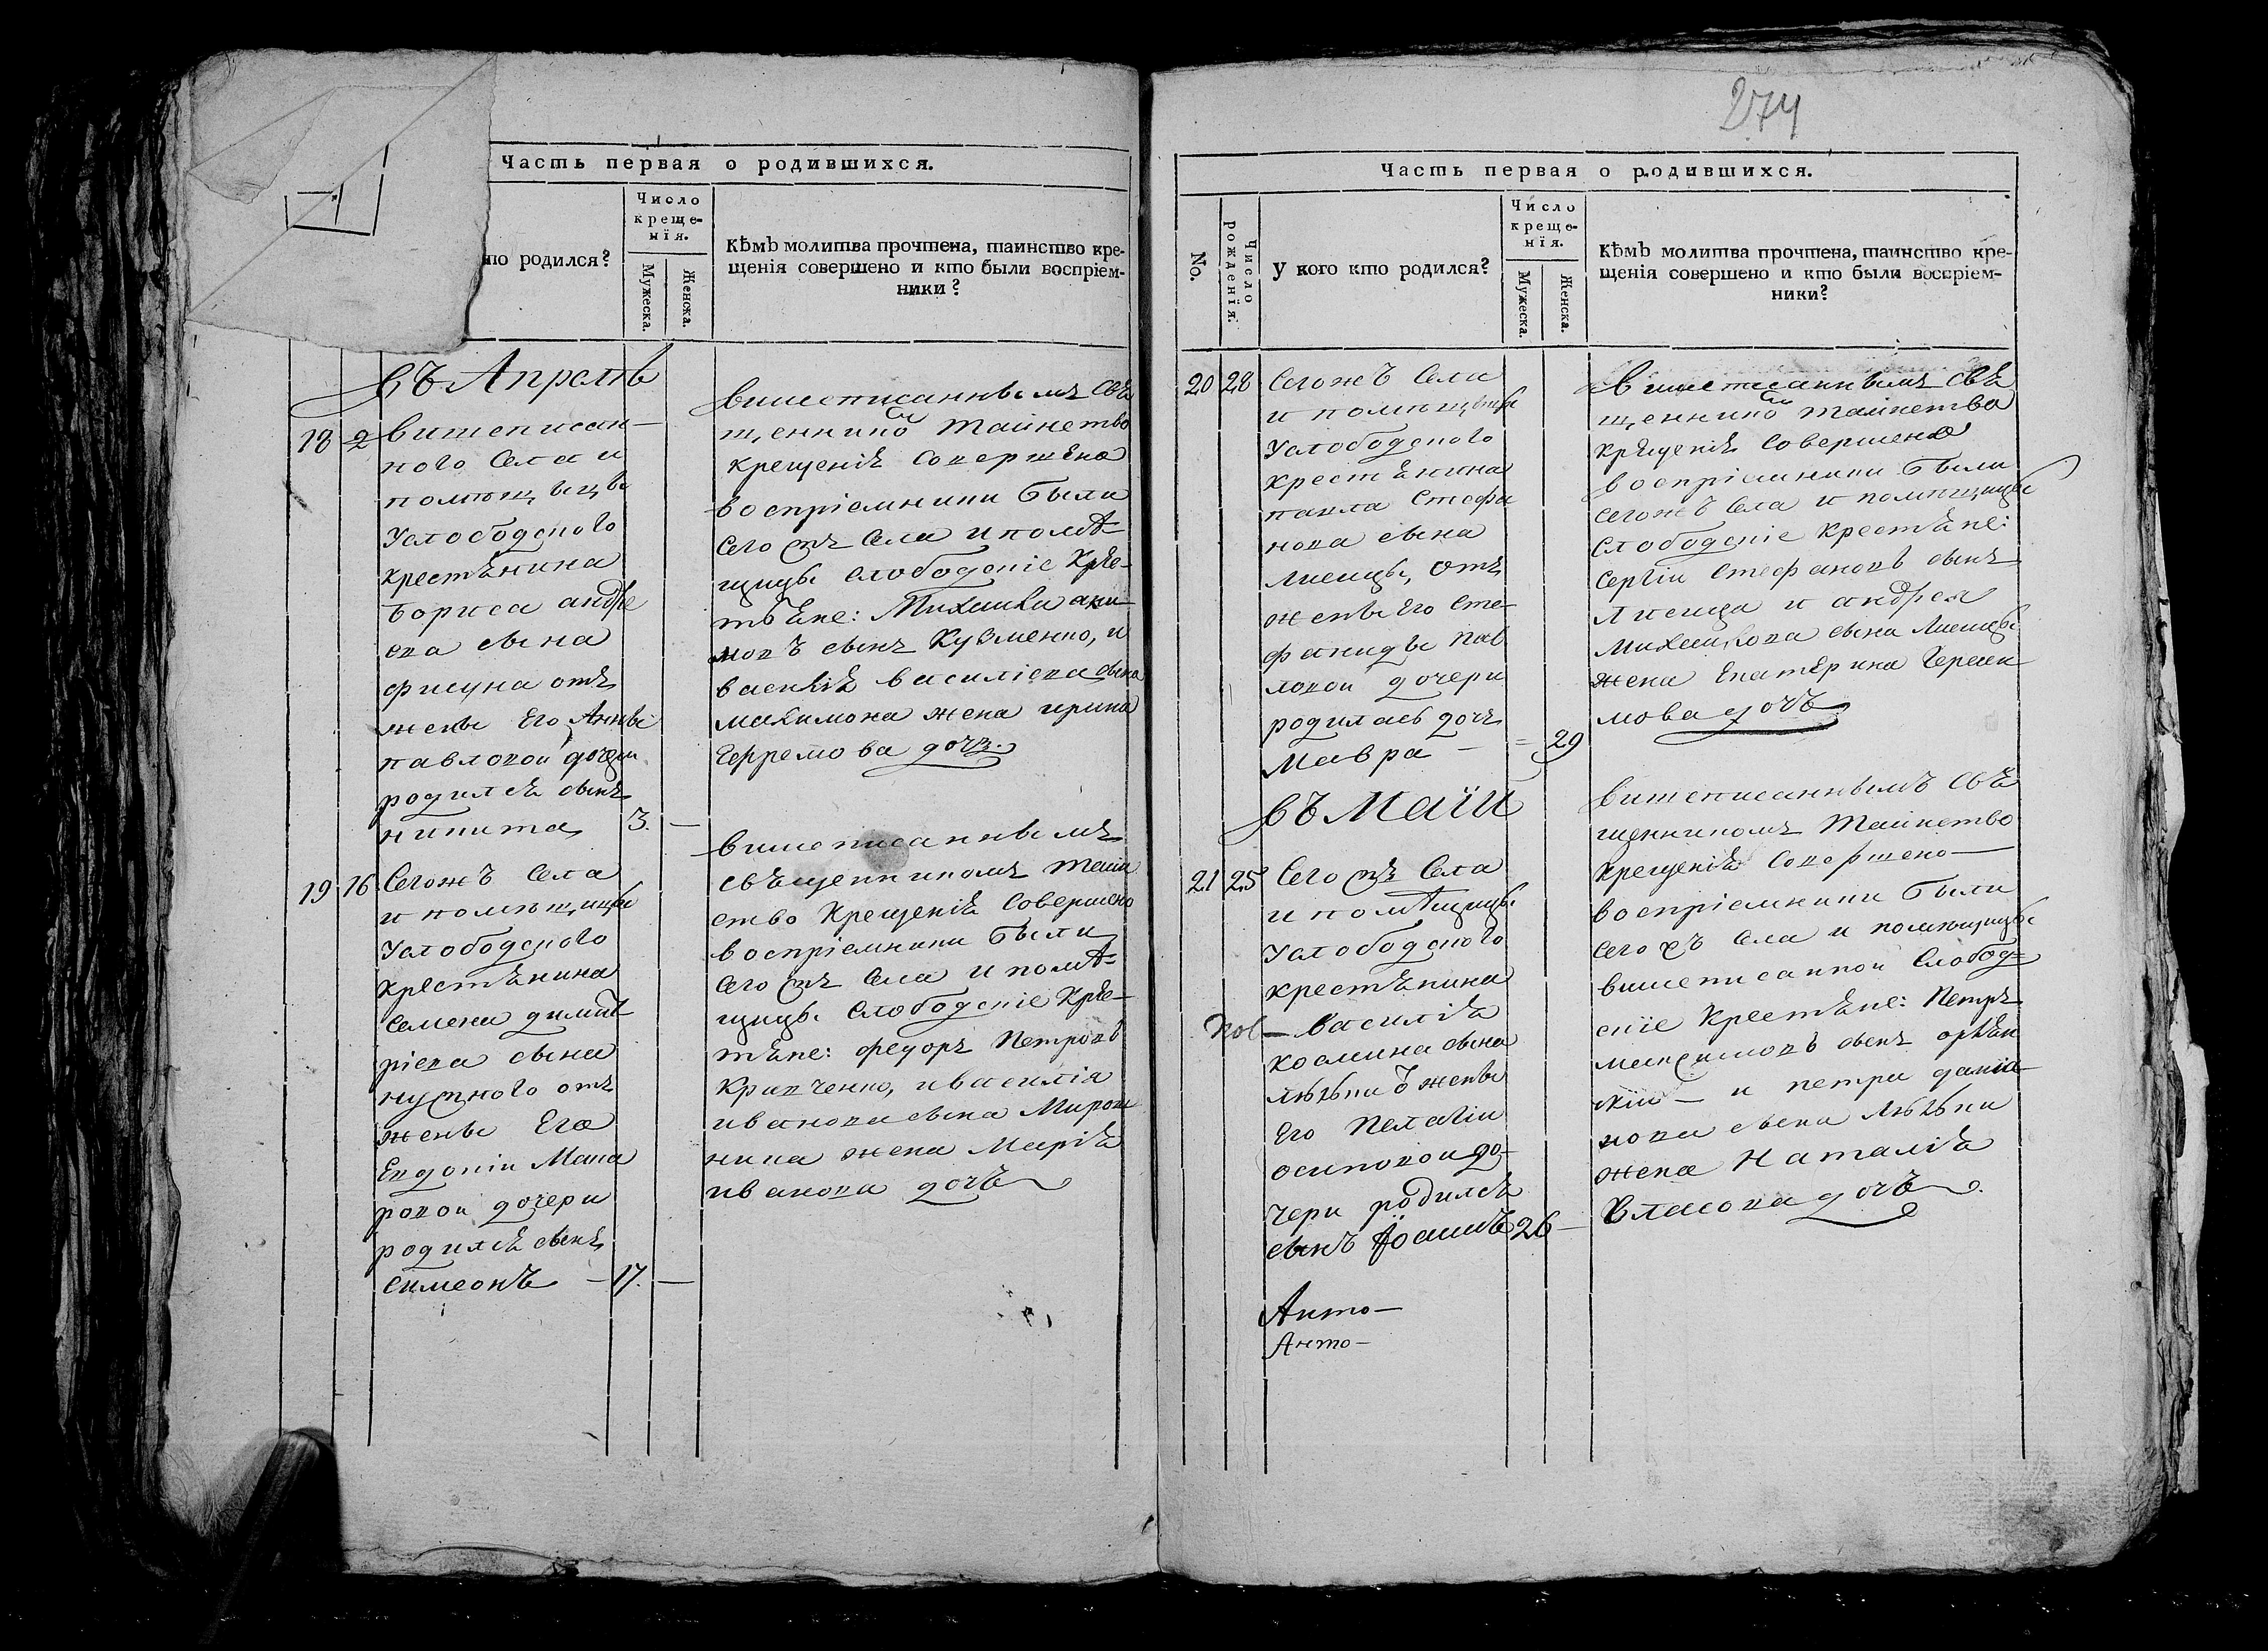 274
Часть первая о родившихся.
то родился?
Число
креще-
нія.
Мужеска.
Женска.
Кѣмъ молитва прочтена, таинство кре-
щенія совершено и кто были воспріем-
ники?
въ Апрелѣ
18 2 вишеписан-
ного Села и
помѣщицы
Услободского
крестѣнина
бориса андре
ева сына
фисуна отъ
жены Его Анны
павловой дочери
родилсѣ сынъ
никита 3. —
вишеписаннымъ свѣ
щенникомъ Тайнство
крещеніѣ Совершено
воспріемники были
Сегожъ Села и помѣ-
щицы Слободскіе Крѣс-
тѣне: Михаила аки-
мовъ сынъ Кузменко, и
василіѣ василіева сына
максимова жена ирина
Ефремова дочъ.
19 16 Сегожъ Села
и помѣщицы
Услободского
крестѣнина
Семена димит
ріева сына
нужного отъ
жены Его
Евдокіи Мака
ровой дочери
родилсѣ сынъ
симеонъ — 17. —
вишеписаннымъ
свѣщенникомъ таин
ство Крещеніѣ Совершено
воспріемники были
Сегожъ Села и помѣ-
щицы Слободскіе Крѣс-
тѣне: федоръ Петровъ
Кравченко, и василія
иванова сына Мирош
ника жена Маріѣ
иванова дочъ
Часть первая о родившихся.
No.
Число
рожденія.
У кого кто родился?
Число
креще-
нія.
Мужеска.
Женска.
Кѣмъ молитва прочтена, таинство кре-
щенія совершено и кто были воспріем-
ники?
20 28 Сегожъ Села
и помѣщицы
Услободского
крестѣнина
павла Стефа
нова сына
лисицы, отъ
жены его Сте-
фаниды Пав
ловой дочери
родилась дочъ
Мавра — = 29
вишеписаннымъ свѣ
щенникомъ тайнство
крѣщеніѣ Совершено
воспріемники были
Сегожъ Села и помѣщицы
Слободскіе Крестѣне:
Сергіи Стефановъ сынъ
Лисица и андрея
Михаилова сына Лисицы
жена Екатерина Гераси
мова дочъ
въ Маіи
21 25 Сегожъ Села
и помѣщицы
Услободского
крестѣнина
— василіѣ
козмина сына
жены
Его Пелагіи
осиповой до-
чери родилсѣ
сынъ 26 —
Анто —
Анто —
вишеписаннымъ Свѣ
щенникомъ Тайнство
Крещеніѣ Совершено —
воспріемники были
Сегожъ Села и помѣщицы
вишеписанной Слобод-
скіе Крестѣне: Петръ
максимовъ сынъ
— и петра дани
лова сына
жена Наталіѣ
Власова дочъ